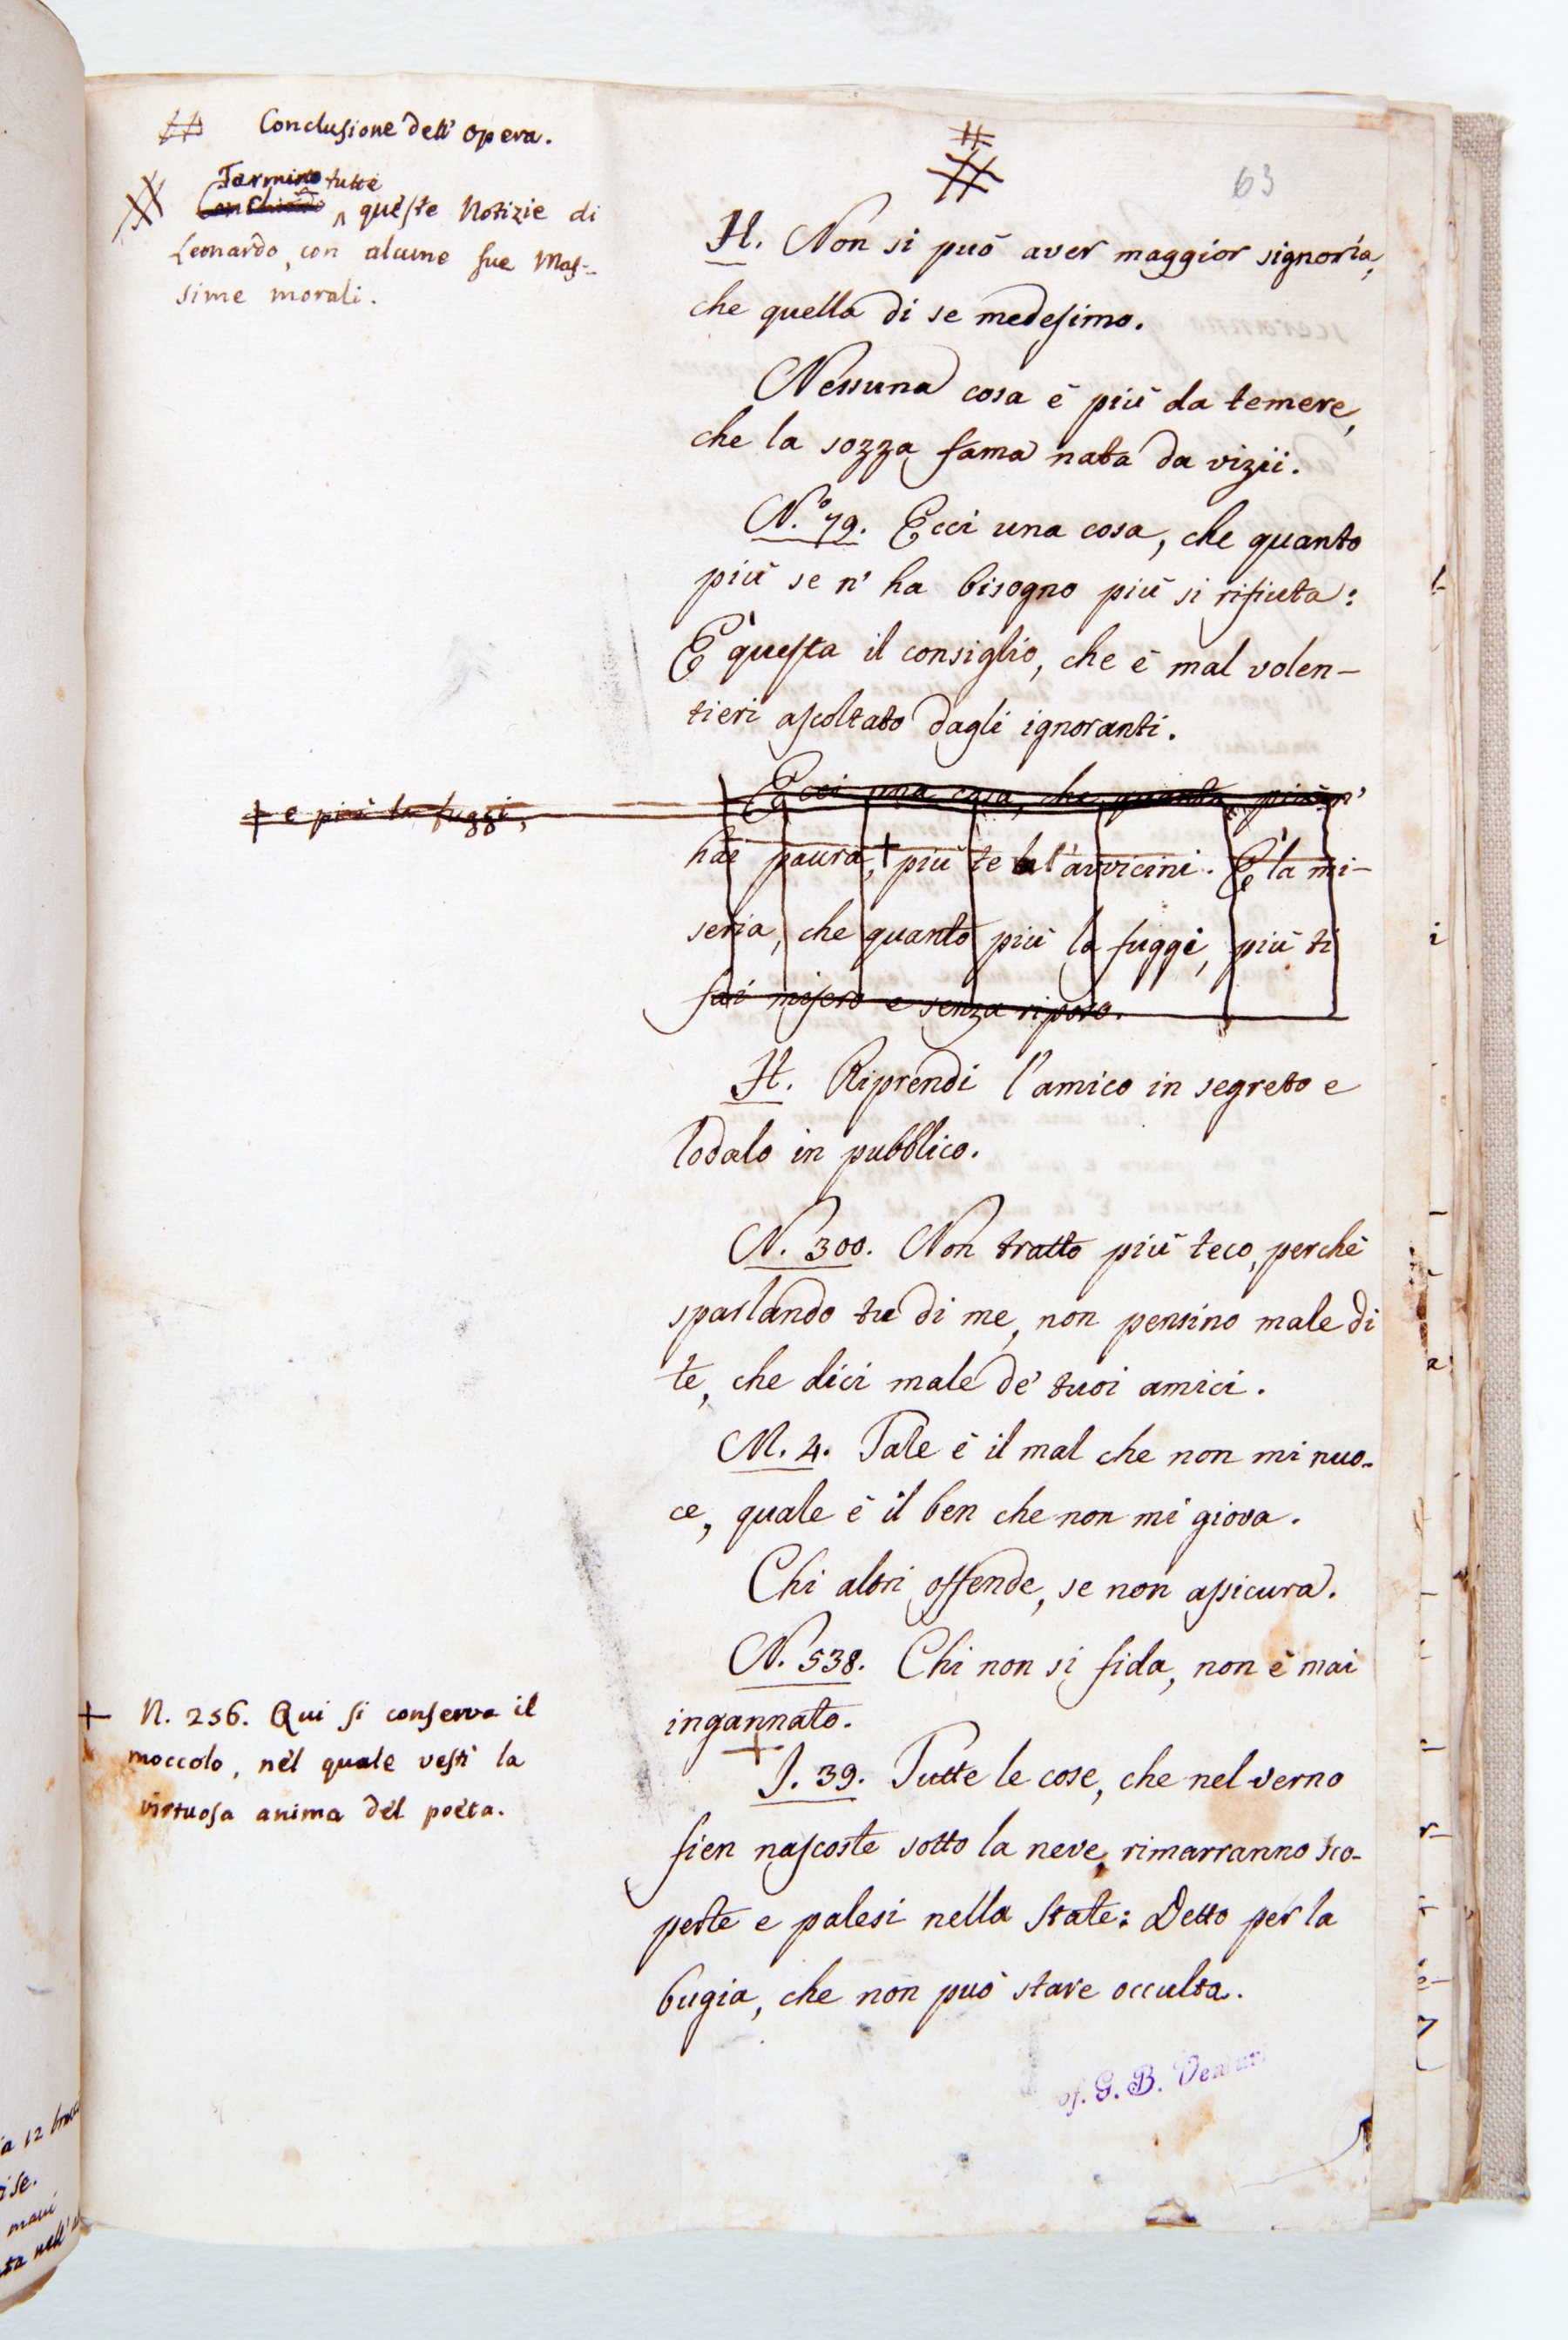 Conclusione dell' opera.
Termino tutte
Conchiudo queste Notizie di
Leonardo, con alcune sue Mas-
sime morali.
63
H. Non si può aver maggior signoria,
che quella di se medesimo.
Nessuna cosa è più da temere,
che la sozza fama nata da vizii.
N.º 79. Ecci una cosa, che quanto
più se n' ha bisogno più si rifiuta:
E' questa il consiglio, che è mal volen-
tieri ascoltato dagli ignoranti.
Ecci una cosa, che quanto più n'
+ e più la fuggi,
hai paura, + più te l'avvicini. E' la mi-
seria, che quanto più la fuggi, più ti
fai misero e senza riposo.
H. Riprendi l'amico in segreto e
lodalo in pubblico.
N. 300. Non tratto più teco, perchè
sparlando tu di me, non pensino male di
te, che dici male de' tuoi amici.
M. 4. Tale è il mal che non mi nuo-
ce, quale è il ben che non mi giova.
Chi altri offende, se non assicura.
N. 538. Chi non si fida, non è mai
ingannato.
+
+ N. 256. Qui si conserva il
moccolo, nel quale vestì la
virtuosa anima del poeta.
J. 39. Tutte le cose, che nel verno
sien nascoste sotto la neve, rimarranno sco-
perte e palesi nella State: Detto per la
bugia, che non può stare occulta.
of. G. B. Venturi
a 12 bracc
ise.
mani